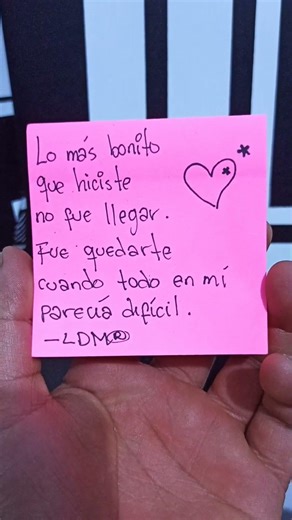 Lo más bonito
que hiciste
no fue llegar.
Fue quedarte
cuando todo en mí
parecía difícil.
-LDM®